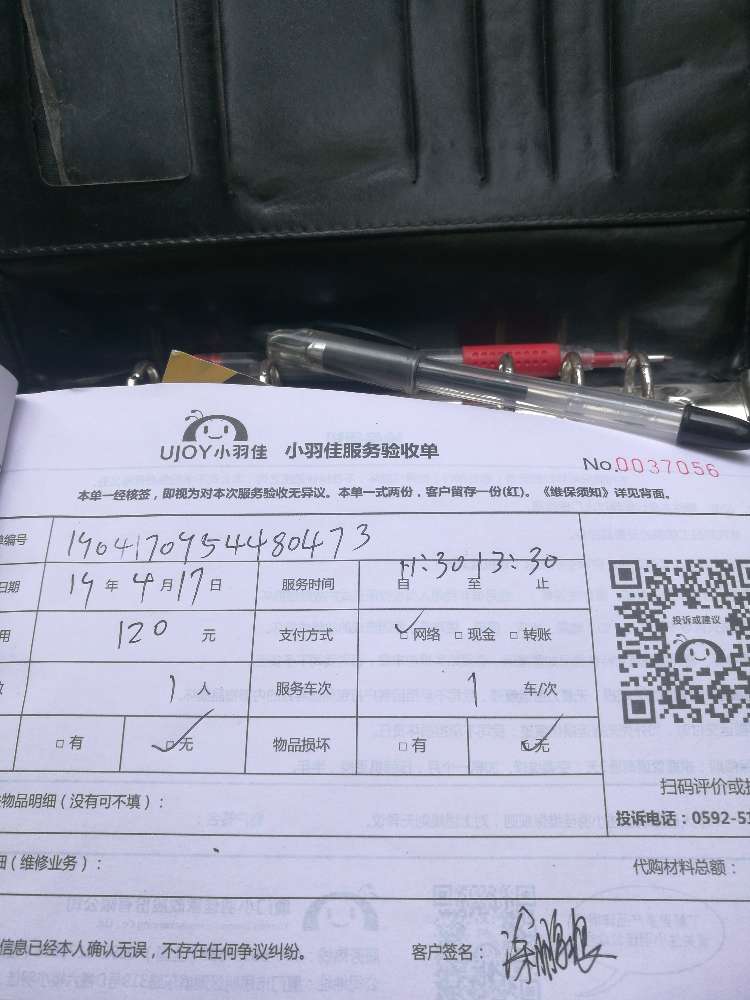 UJOY小羽佳 小羽佳服务验收单
No.0037056
本单一经核签，即视为对本次服务验收无异议。本单一式两份，客户留存一份(红)。《维保须知》详见背面。
单编号 1904170954480473
日期 19 年 4 月 17 日 服务时间 自 11:30 至 13:30 止
用 120 元 支付方式 ☑网络 □现金 □转账
1 人 服务车次 1 车/次
□有 ☑无 物品损坏 □有 ☑无
投诉或建议
扫码评价或投
物品明细（没有可不填）：
投诉电话：0592-51
细（维修业务）：
代购材料总额：
信息已经本人确认无误，不存在任何争议纠纷。 客户签名：